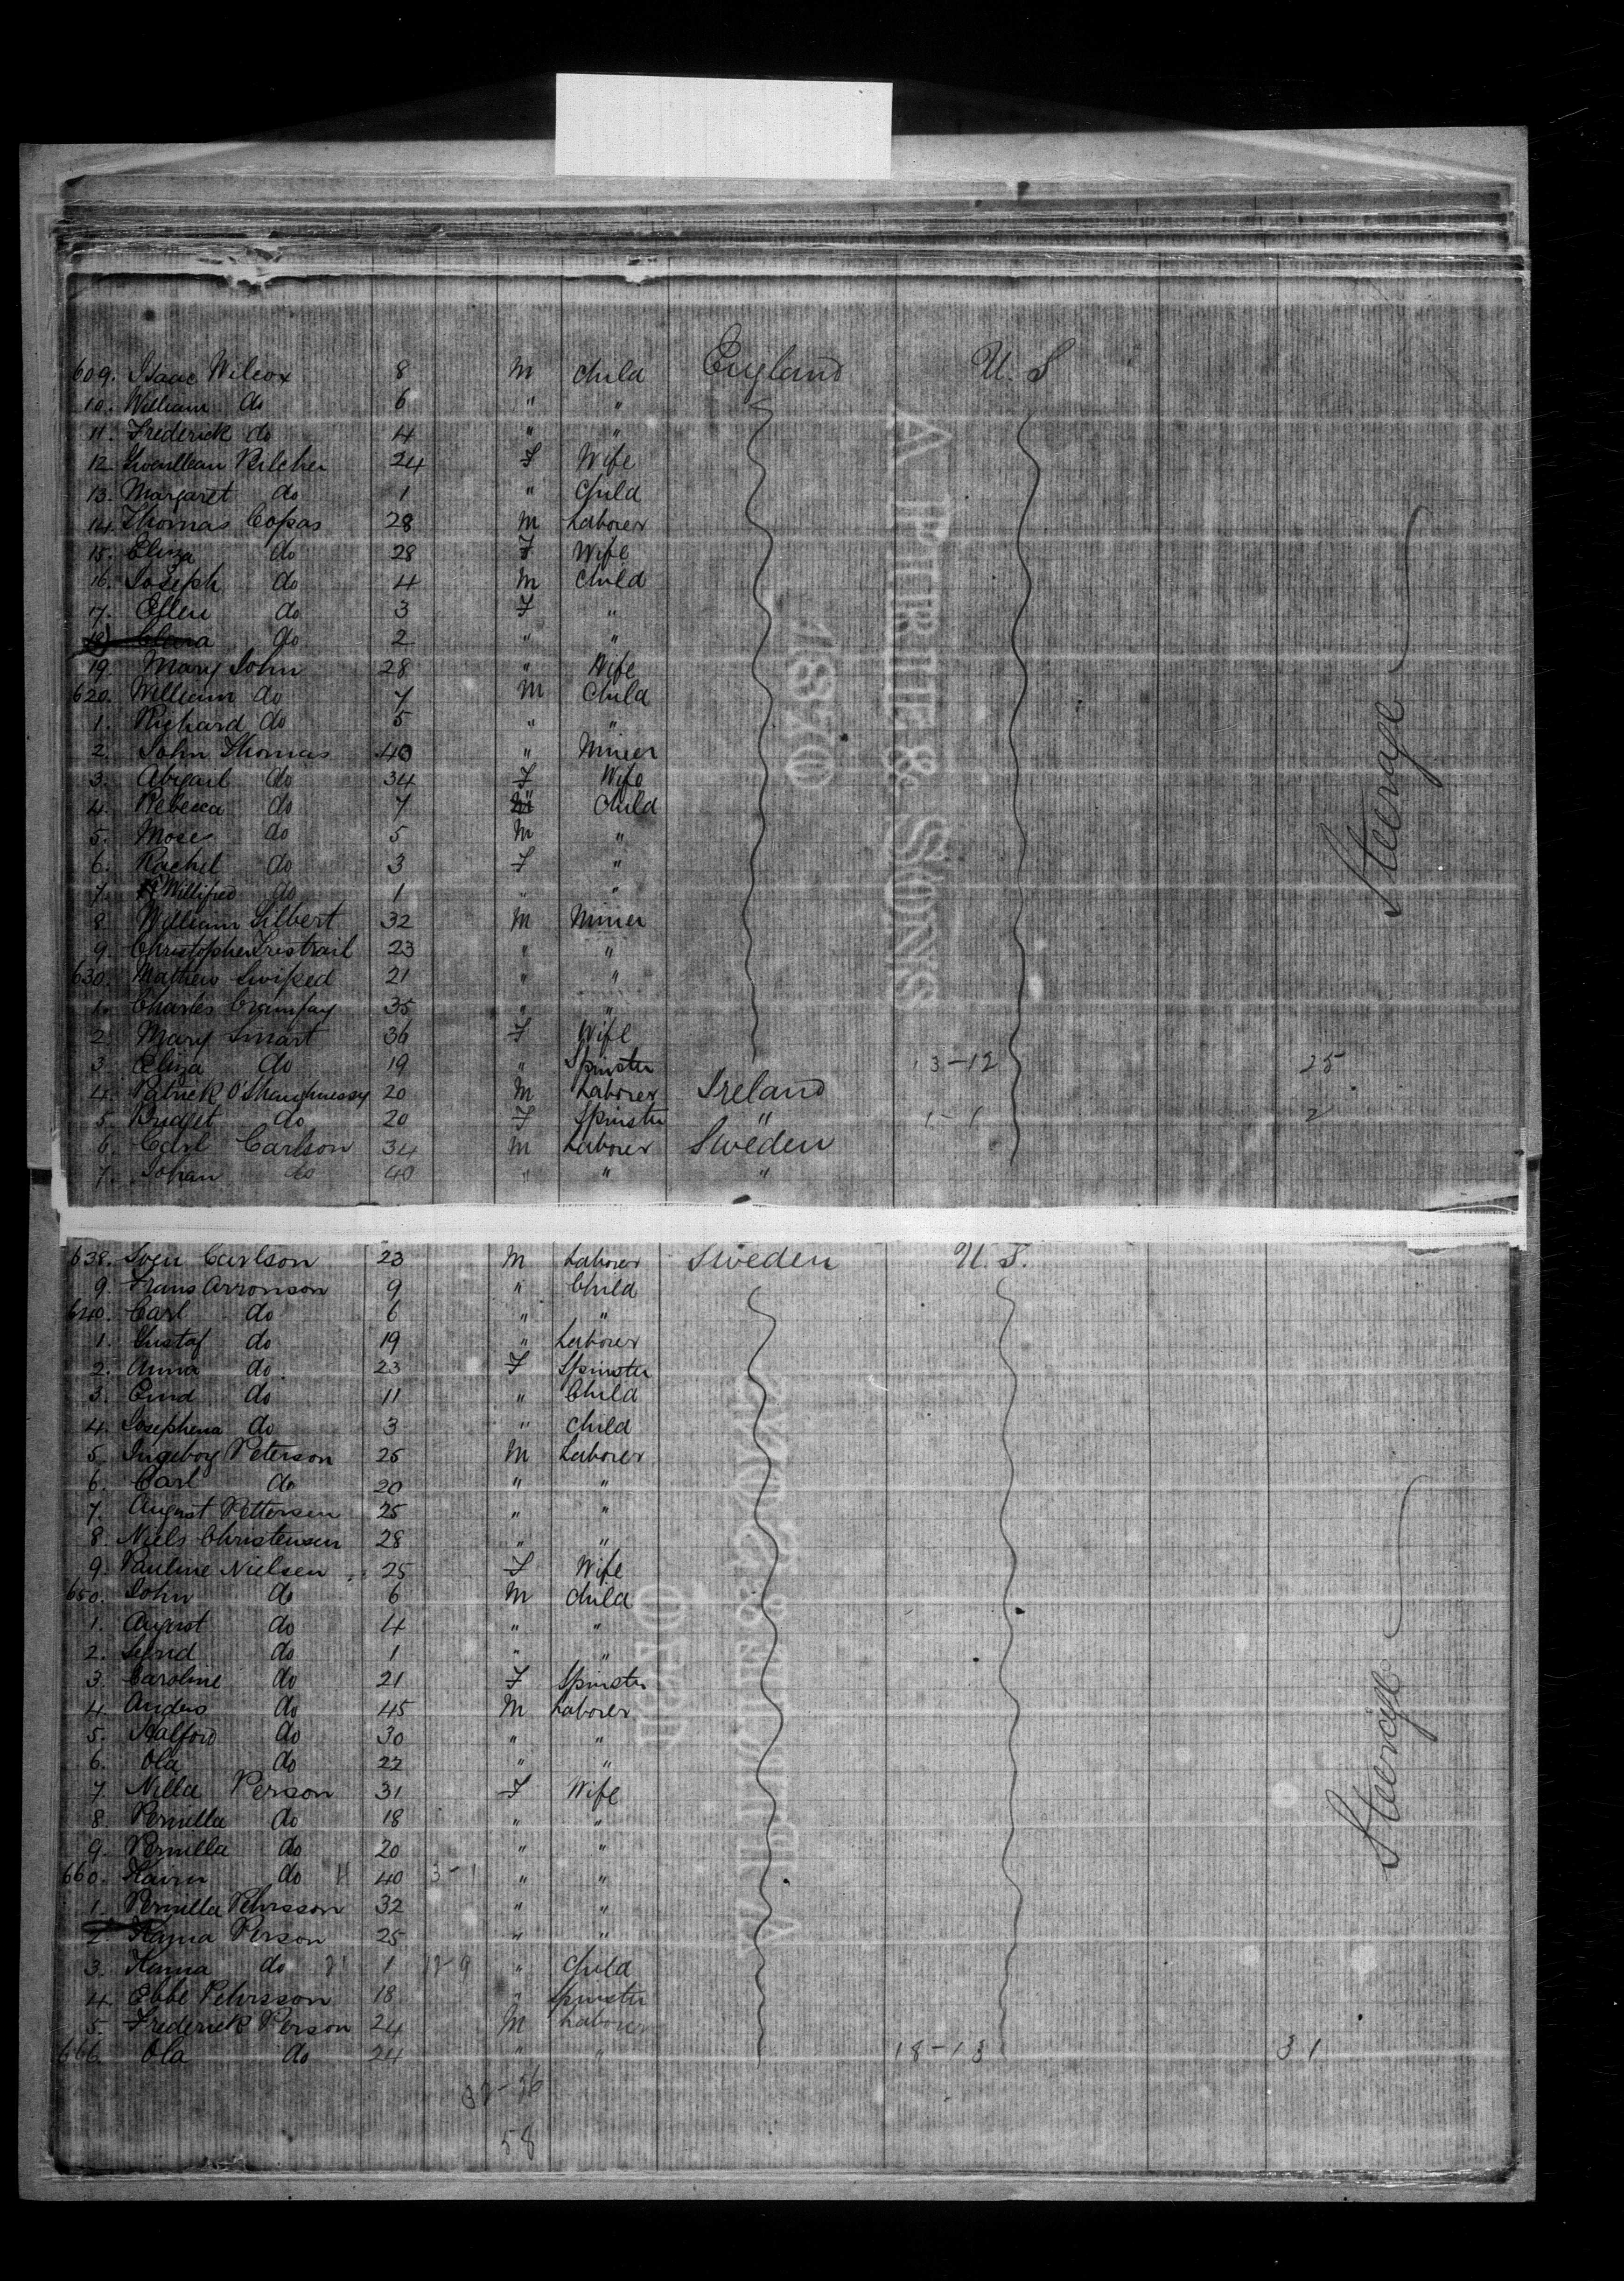 609. Isaac Wilcox 8 M Child England U. S
10. William do 6 " "
11. Frederick do 4 " "
12. Gwenllean Pilcher 24 F Wife
13. Margaret do 1 " Child
14. Thomas Copas 28 M Laborer
15. Eliza do 28 F Wife
16. Joseph do 4 M Child
17. Ellen do 3 F "
18 Clara do 2 " "
19. Mary John 28 " Wife
620. William do 7 M Child
1. Richard do 5 " "
2. John Thomas 40 " Miner
3. Abigail do 34 F Wife
4. Rebecca do 7 " Child
5. Moses do 5 M "
6. Rachel do 3 F "
7. Willifred do 1 " "
8. William Gilbert 32 M Miner
9. Christopher Trestrail 23 " "
630. Mathew 21 " "
1. Charles 35 " "
2. Mary Smart 36 F Wife
3. Eliza do 19 " Spinster 13-12 25
4. Patrick O'Shaughnessy 20 M Laborer Ireland
5. Bridget do 20 F Spinster " 1-1 2
6. Carl Carlson 34 M Laborer Sweden
7. Johan do 40 " " "
Steerage
A PIRIE & SONS
1870
638. Sven Carlson 23 M Laborer Sweden U. S.
9. Frans Arronson 9 " Child
640. Carl do 6 " "
1. Gustaf do 19 " Laborer
2. Anna do 23 F Spinster
3. do 11 " Child
4. Josephena do 3 " Child
5. Ingeborg Peterson 25 M Laborer
6. Carl do 20 " "
7. August Pettersen 25 " "
8. Niels Christensen 28 " "
9. Pauline Nielsen 25 F Wife
650. John do 6 M Child
1. August do 4 " "
2. do 1 " "
3. Caroline do 21 F Spinster
4. Anders do 45 M Laborer
5. do 30 " "
6. Ola do 22 " "
7. Nilla Person 31 F Wife
8. Pernilla do 18 " "
9. Pernilla do 20 " "
660. do 40 3-1 " "
1. Pernilla Pehrsson 32 " "
2. Person 25 " "
3. Hanna do 1 " Child
4. Ebbe Pehrsson 18 " Spinster
5. Frederick Person 24 M Laborer
666. Ola do 24 " " 18-13 31
58
Steerage
A PIRIE & SONS
1870